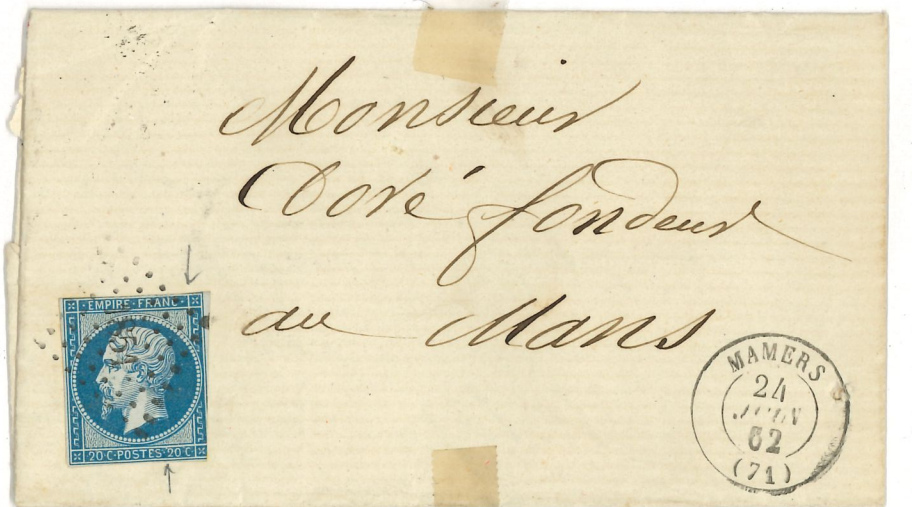 Monsieur
Doré fondeur
au Mans
EMPIRE FRANC
20 C · POSTES · 20 C
MAMERS
24
JUIN
62
(71)